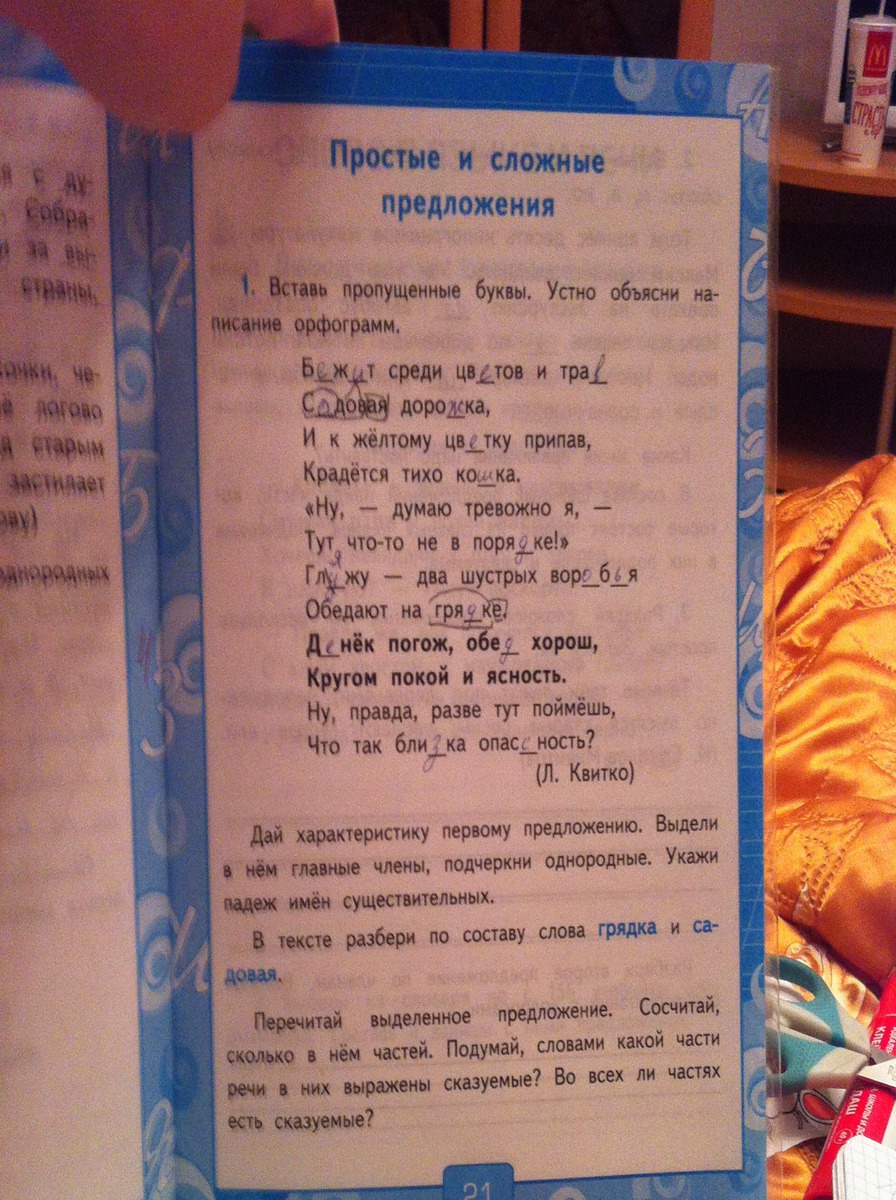 я с ду-
Собра-
и за вы-
страны,
очки, че-
логово
я старым
застилает
ову)
однородных
Простые и сложные
предложения
1. Вставь пропущенные буквы. Устно объясни на-
писание орфограмм.
Бежит среди цветов и трав
Садовая дорожка,
И к жёлтому цветку припав,
Крадётся тихо кошка.
«Ну, — думаю тревожно я, —
Тут что-то не в порядке!»
Гляжу — два шустрых воробья
Обедают на грядке.
Денёк погож, обед хорош,
Кругом покой и ясность.
Ну, правда, разве тут поймёшь,
Что так близка опасеность?
(Л. Квитко)
Дай характеристику первому предложению. Выдели
в нём главные члены, подчеркни однородные. Укажи
падеж имён существительных.
В тексте разбери по составу слова грядка и са-
довая.
Перечитай выделенное предложение. Сосчитай,
сколько в нём частей. Подумай, словами какой части
речи в них выражены сказуемые? Во всех ли частях
есть сказуемые?
21
СТРАСТЬ